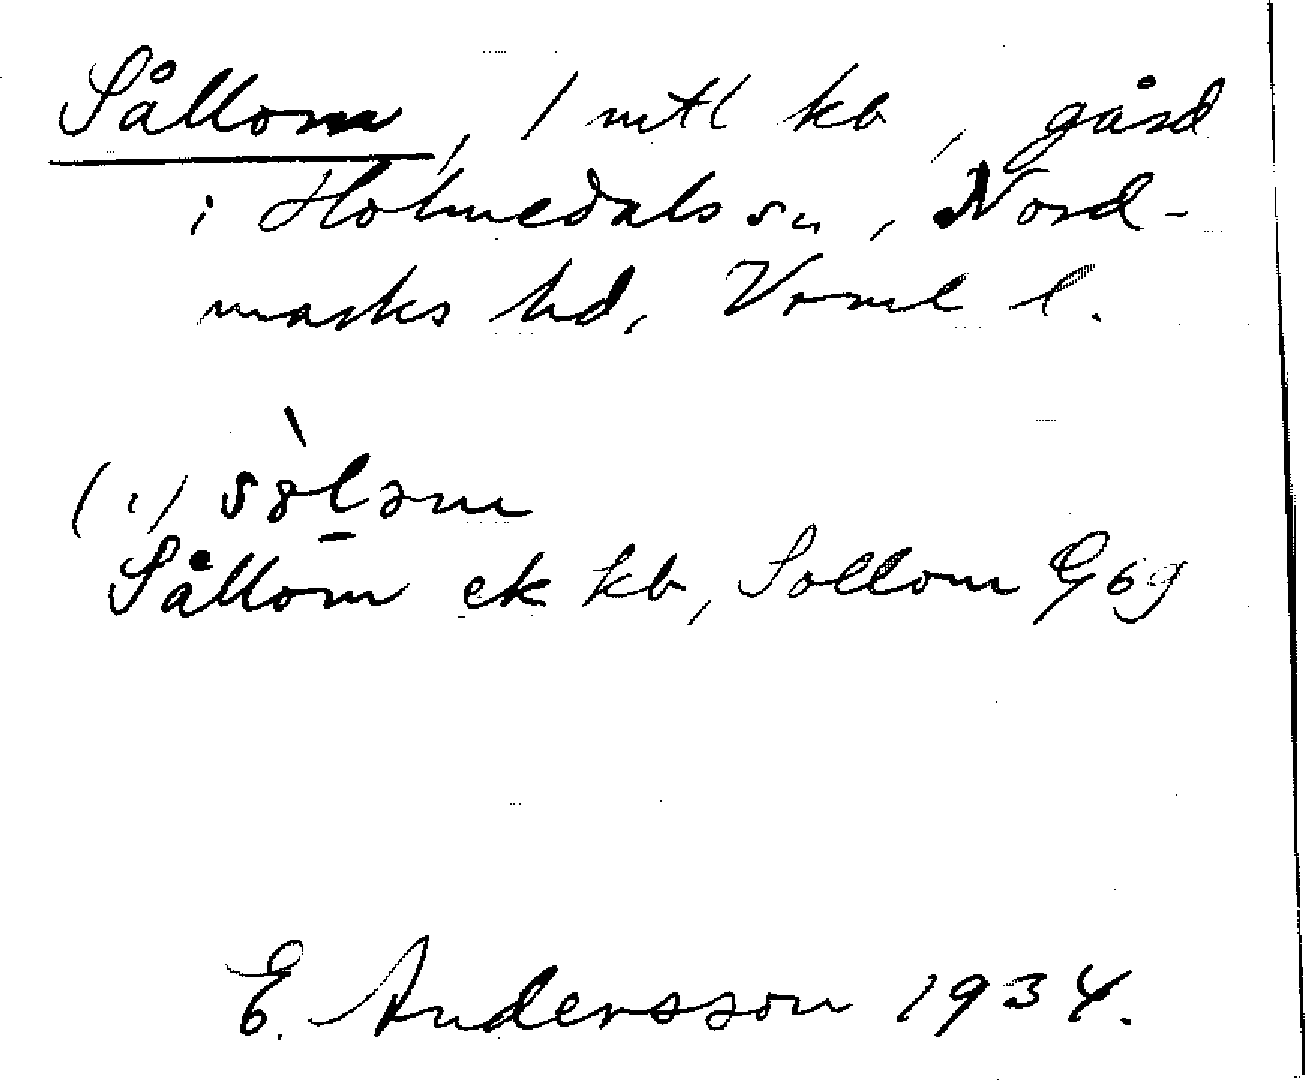 Sållom, 1 mtl kb, gård
i Holmedals sn, Nord-
marks hd, Vrml l.
(i) sò̀lom
Sållom ek kb, Sollom G 69
E. Andersson 1934.